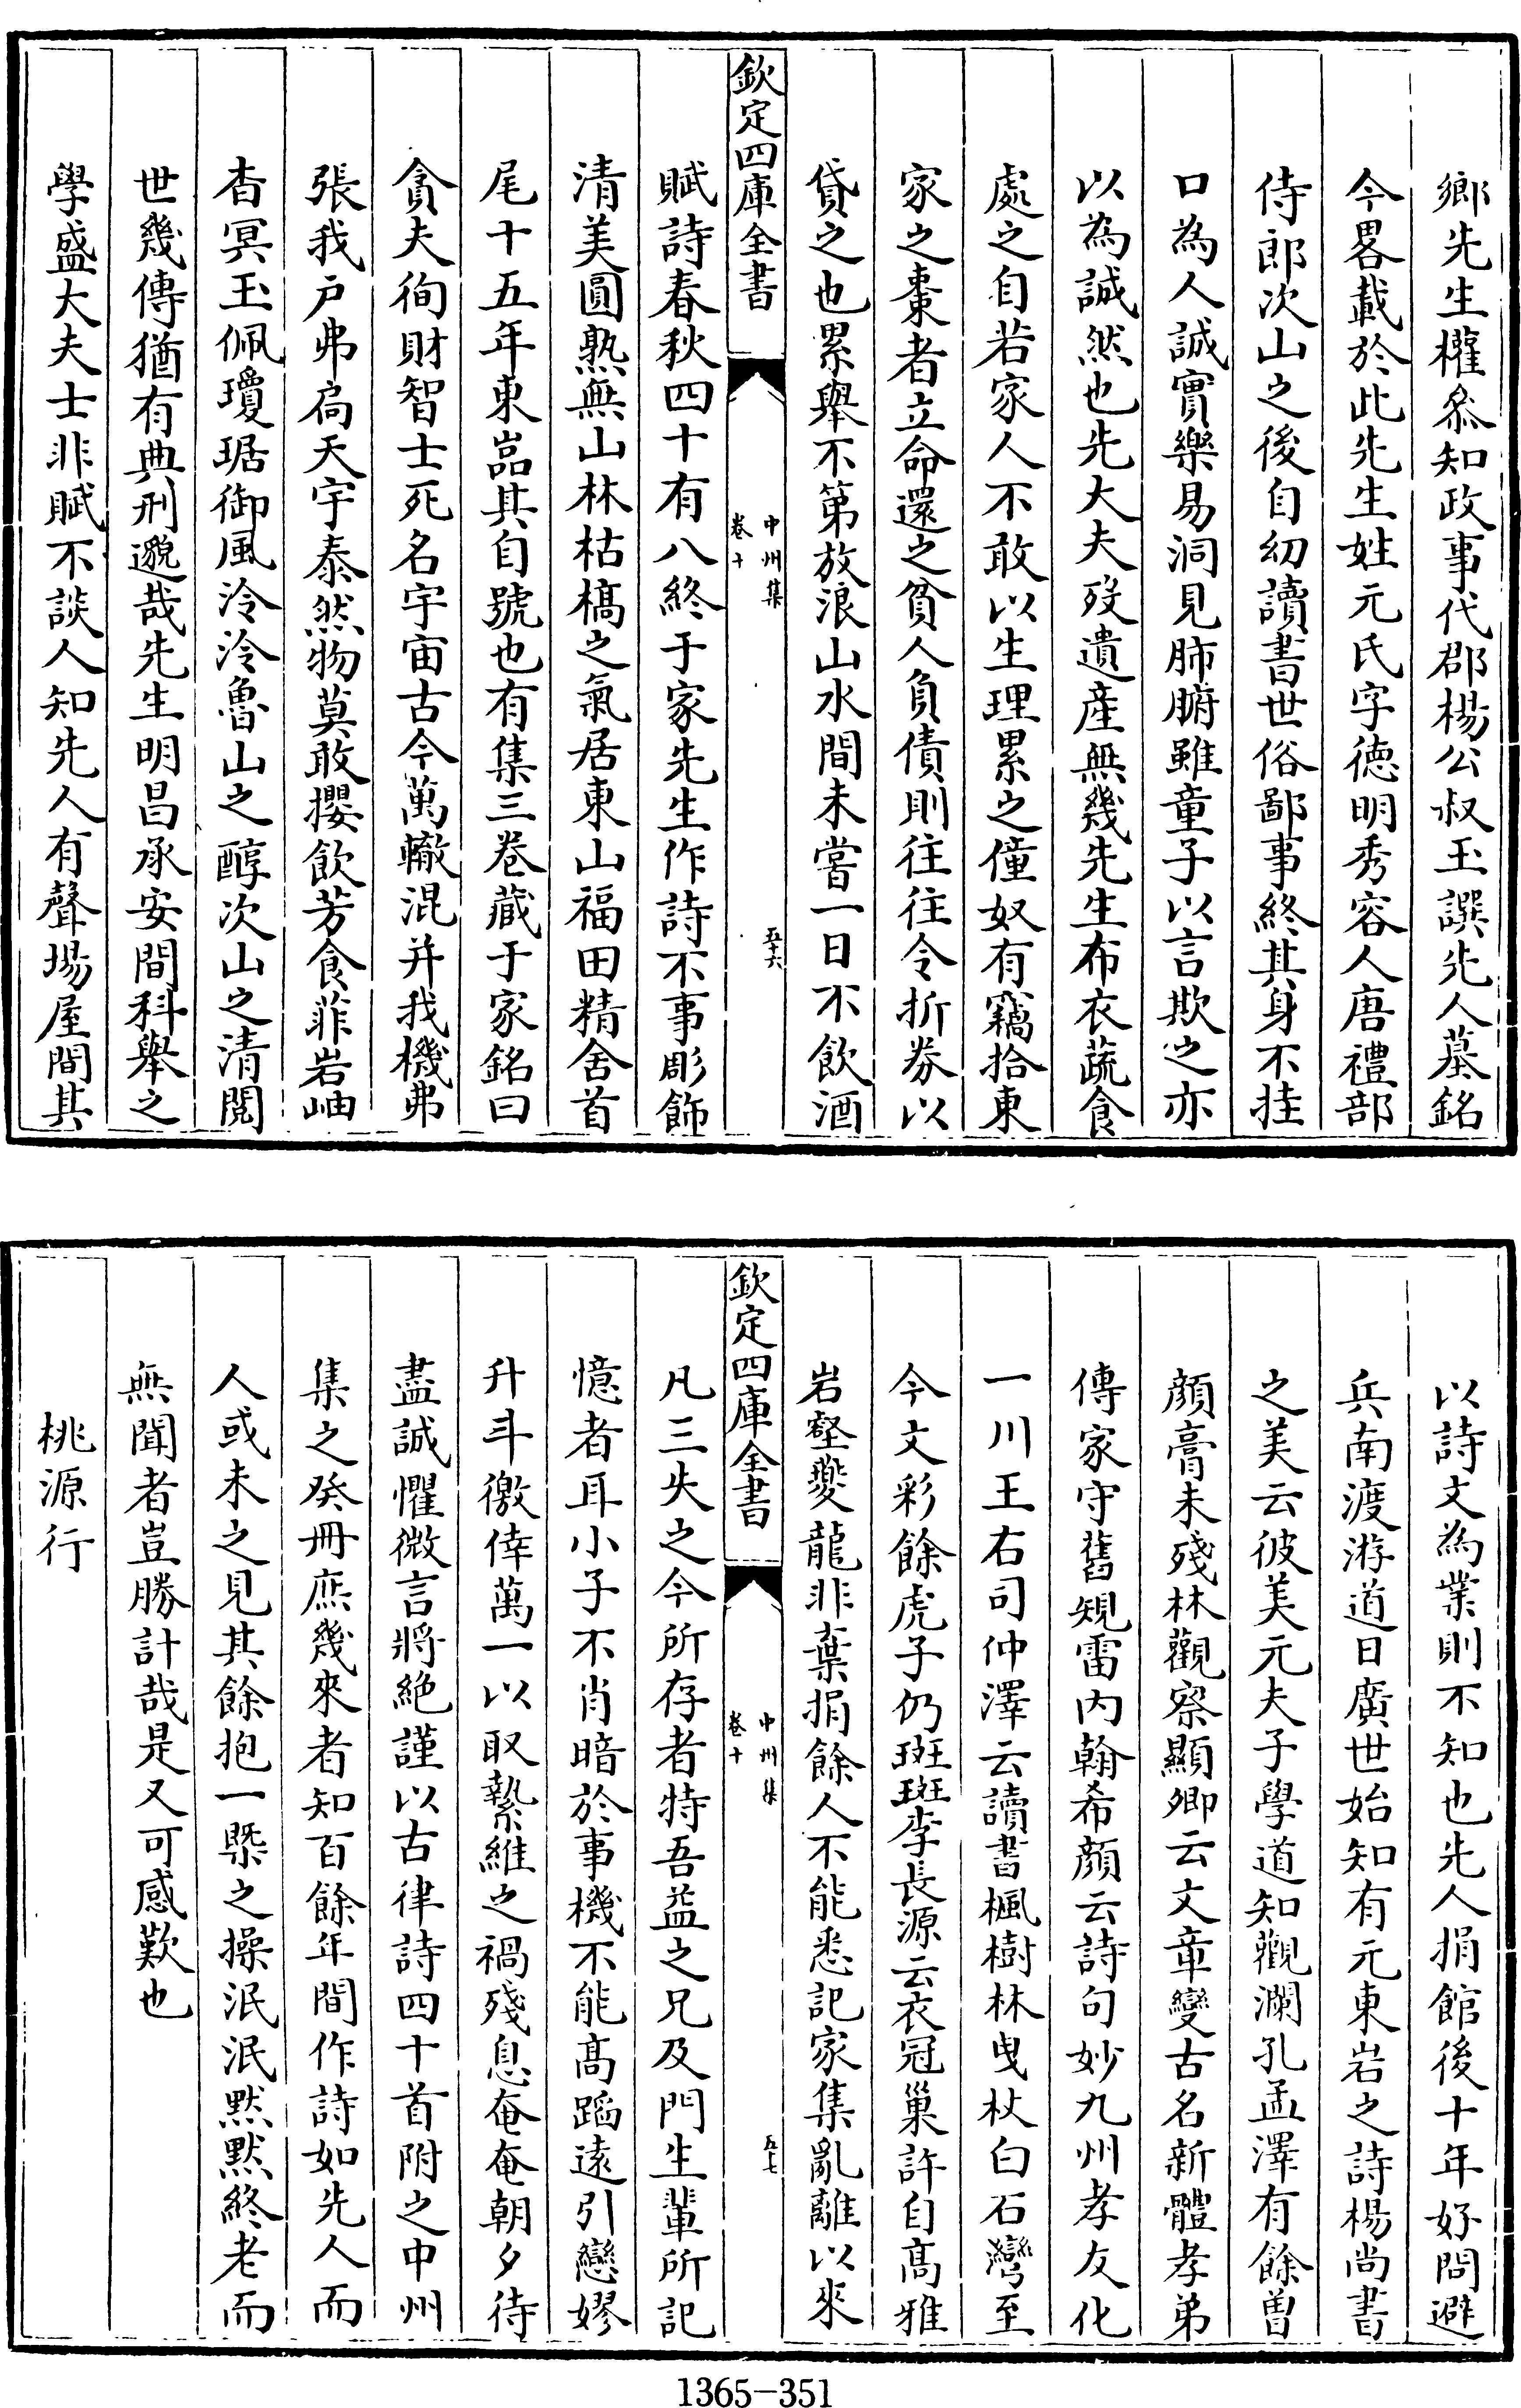 鄉先生權叅知政事代郡楊公叔玉譔先人墓銘
今畧載於此先生姓元氏字德明秀容人唐禮部
侍郎次山之後自幼讀書世俗鄙事終其身不挂
口為人誠實樂易洞見肺腑雖童子以言欺之亦
以為誠然也先大夫歿遺産無幾先生布衣蔬食
處之自若家人不敢以生理累之僮奴有竊拾東
家之棗者立命還之貧人負債則往往令折劵以
貸之也累舉不第放浪山水間未嘗一日不飲酒
欽定四庫全書
中州集
卷十
五十六
賦詩春秋四十有八終于家先生作詩不事彫飾
清美圓熟無山林枯槁之氣居東山福田精舍首
尾十五年東嵓其自號也有集三卷藏于家銘曰
貪夫徇財智士死名宇宙古今萬轍混并我機弗
張我戸弗扃天宇泰然物莫敢攖飲芳食菲岩岫
杳冥玉佩瓊琚御風泠泠魯山之醇次山之清閱
世幾傳猶有典刑邈哉先生明昌承安間科舉之
學盛大夫士非賦不談人知先人有聲場屋間其
以詩文為業則不知也先人捐館後十年好問避
兵南渡游道日廣世始知有元東岩之詩楊尚書
之美云彼美元夫子學道知觀瀾孔孟澤有餘曽
顔膏未殘林觀察顯卿云文章變古名新體孝弟
傳家守舊規雷内翰希顔云詩句妙九州孝友化
一川王右司仲澤云讀書楓樹林曳杖白石灣至
今文彩餘虎子仍斑斑李長源云衣冠巢許自髙雅
岩壑夔龍非棄捐餘人不能悉記家集亂離以來
欽定四庫全書
中州集
卷十
五十七
凡三失之今所存者特吾益之兄及門生輩所記
憶者耳小子不肖暗於事機不能髙蹈逺引戀嫪
升斗徼倖萬一以取縶維之禍殘息奄奄朝夕待
盡誠懼微言將絶謹以古律詩四十首附之中州
集之癸冊庶幾來者知百餘年間作詩如先人而
人或未之見其餘抱一槩之操泯泯黙黙終老而
無聞者豈勝計哉是又可感歎也
桃源行
1365-351